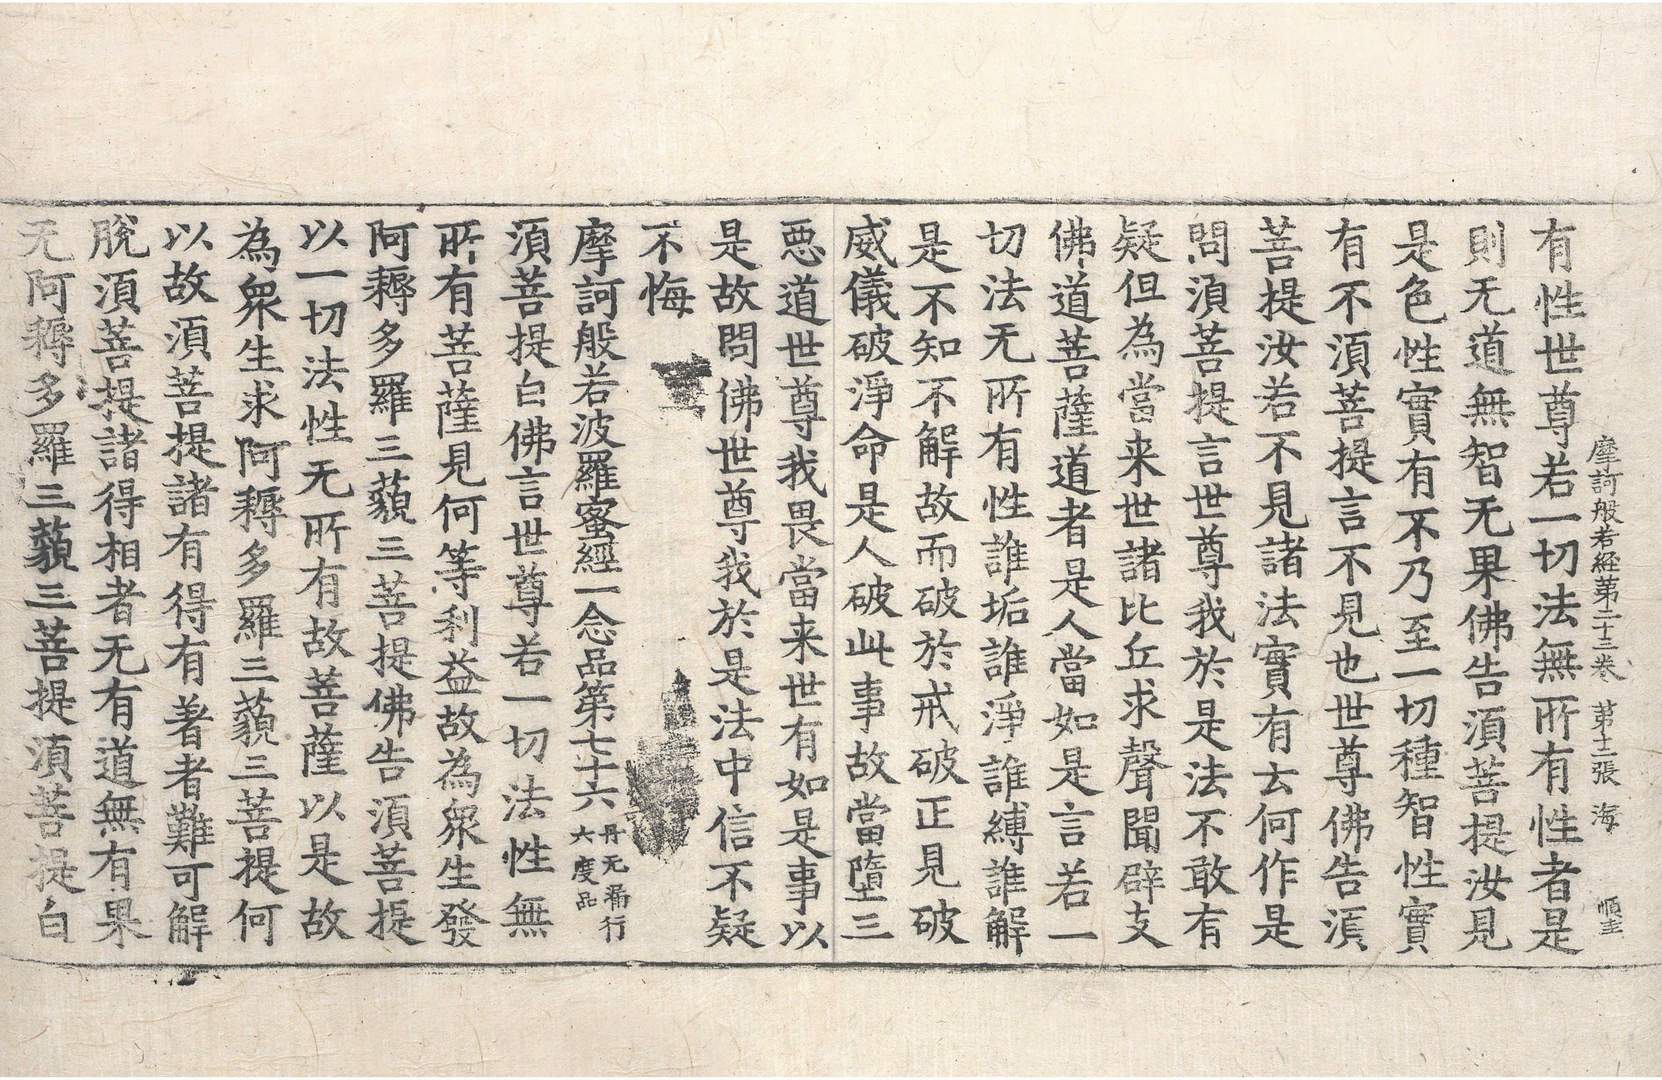 摩訶般若経苐二十三卷　苐十二張　海
有性世尊若一切法無所有性者是
則无道無智无果佛告湏菩提汝見
是色性實有不乃至一切種智性實
有不湏菩提言不見也世尊佛告湏
菩提汝若不見諸法實有云何作是
問湏菩提言世尊我於是法不敢有
疑但為當来世諸比丘求聲聞辟支
佛道菩薩道者是人當如是言若一
切法无所有性誰垢誰淨誰縛誰解
是不知不解故而破於戒破正見破
威儀破淨命是人破此事故當墮三
惡道世尊我畏當来世有如是事以
是故問佛世尊我於是法中信不疑
不悔
摩訶般若波羅蜜經一念品第七十六 丹无漏行六度品
湏菩提白佛言世尊若一切法性無
所有菩薩見何等利益故為衆生發
阿耨多羅三藐三菩提佛告湏菩提
以一切法性无所有故菩薩以是故
為衆生求阿耨多羅三藐三菩提何
以故湏菩提諸有得有著者難可解
脫湏菩提諸得相者无有道無有果
无阿耨多羅三藐三菩提湏菩提白